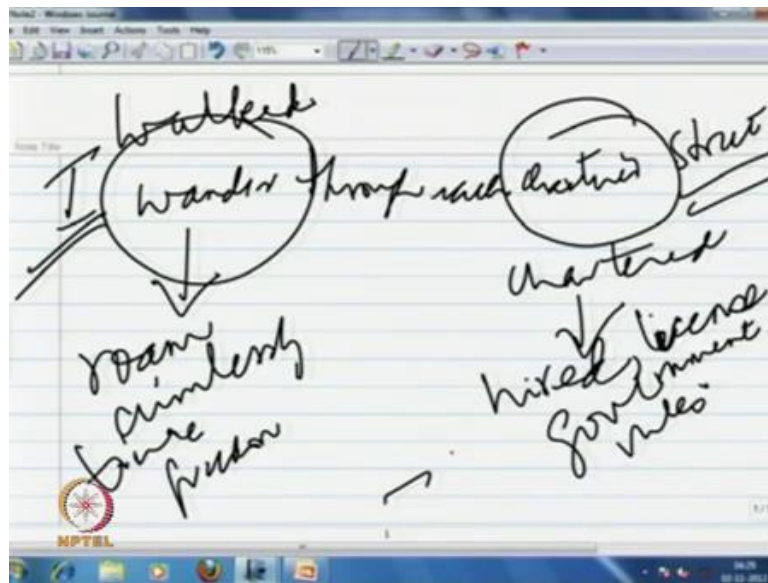 Note2 - Windows Journal
Edit View Insert Actions Tools Help
Note Title
walked
I wander through each charter'd street
chartered
roam
aimlessly
hired, license
government
rules
NPTEL
1